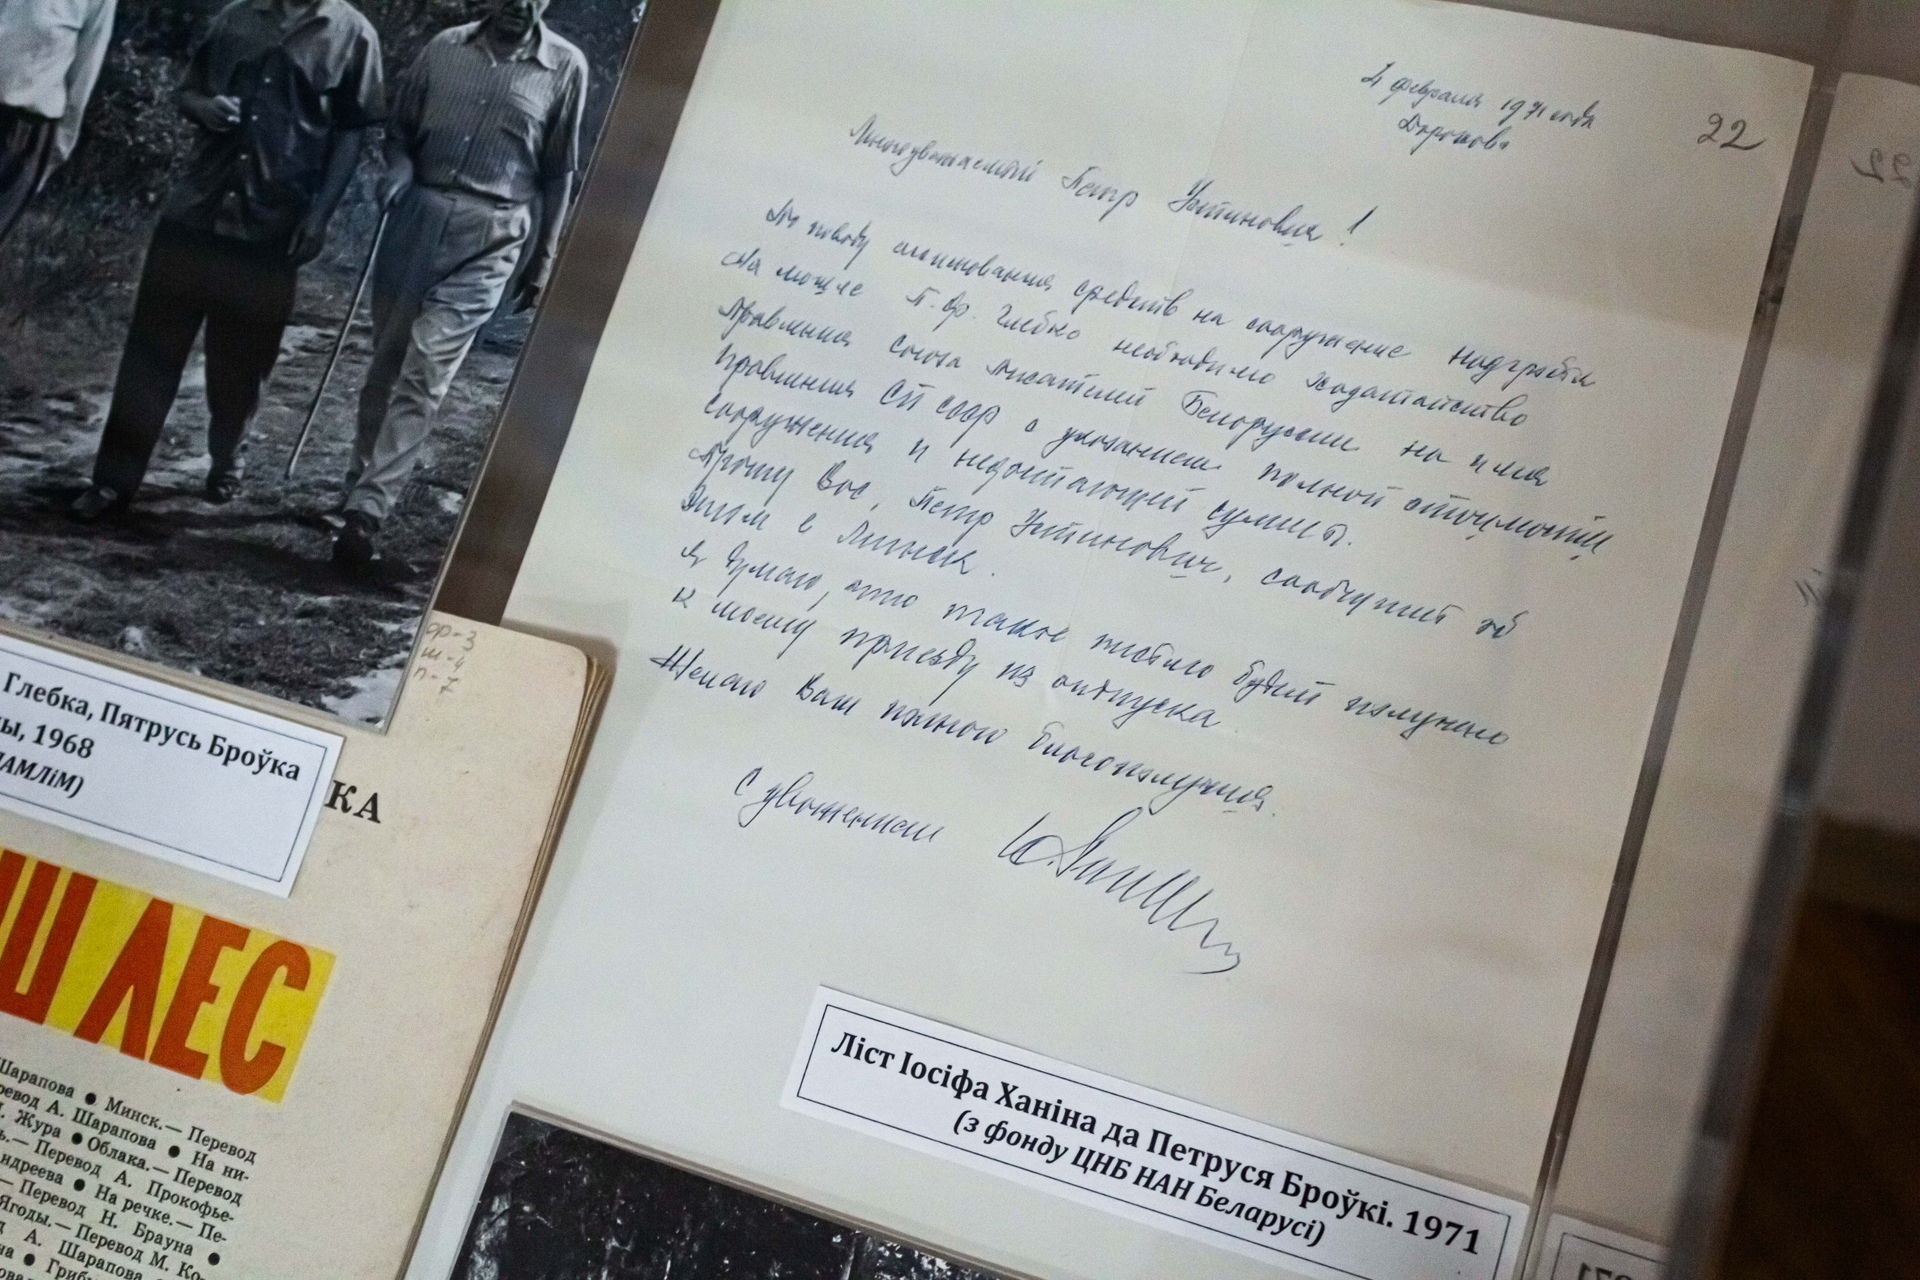 4 февраля 1971 года
Дорохово
22
Многоуважаемый Петр Устинович!
По поводу ассигнования средств на сооружение надгробия
на могиле П. Ф. Глебко необходимо ходатайство
Правления Союза писателей Белоруссии на имя
Правления СП СССР с указанием полной стоимости
сооружения и недостающей суммы.
Прошу Вас, Петр Устинович, сообщить об
этом в Минск.
Я думаю, что такое письмо будет получено
к моему приезду из отпуска.
Желаю Вам полного благополучия.
С уважением
Ліст Іосіфа Ханіна да Петруся Броўкі. 1971
(з фонду ЦНБ НАН Беларусі)
ор-3
ш-4
п-7
Глебка, Пятрусь Броўка
ы, 1968
ДАМЛіМ)
КА
Ш ЛЕС
Шарапова ● Минск.— Перевод
ревод А. Шарапова ● На ни-
. Жура ● Облака.— Перевод
ь.— Перевод А. Прокофье-
ндреева ● На речке.— Пе-
— Перевод Н. Брауна ●
Ягоды.— Перевод М. Ко-
А. Шарапова
на ● Грибы